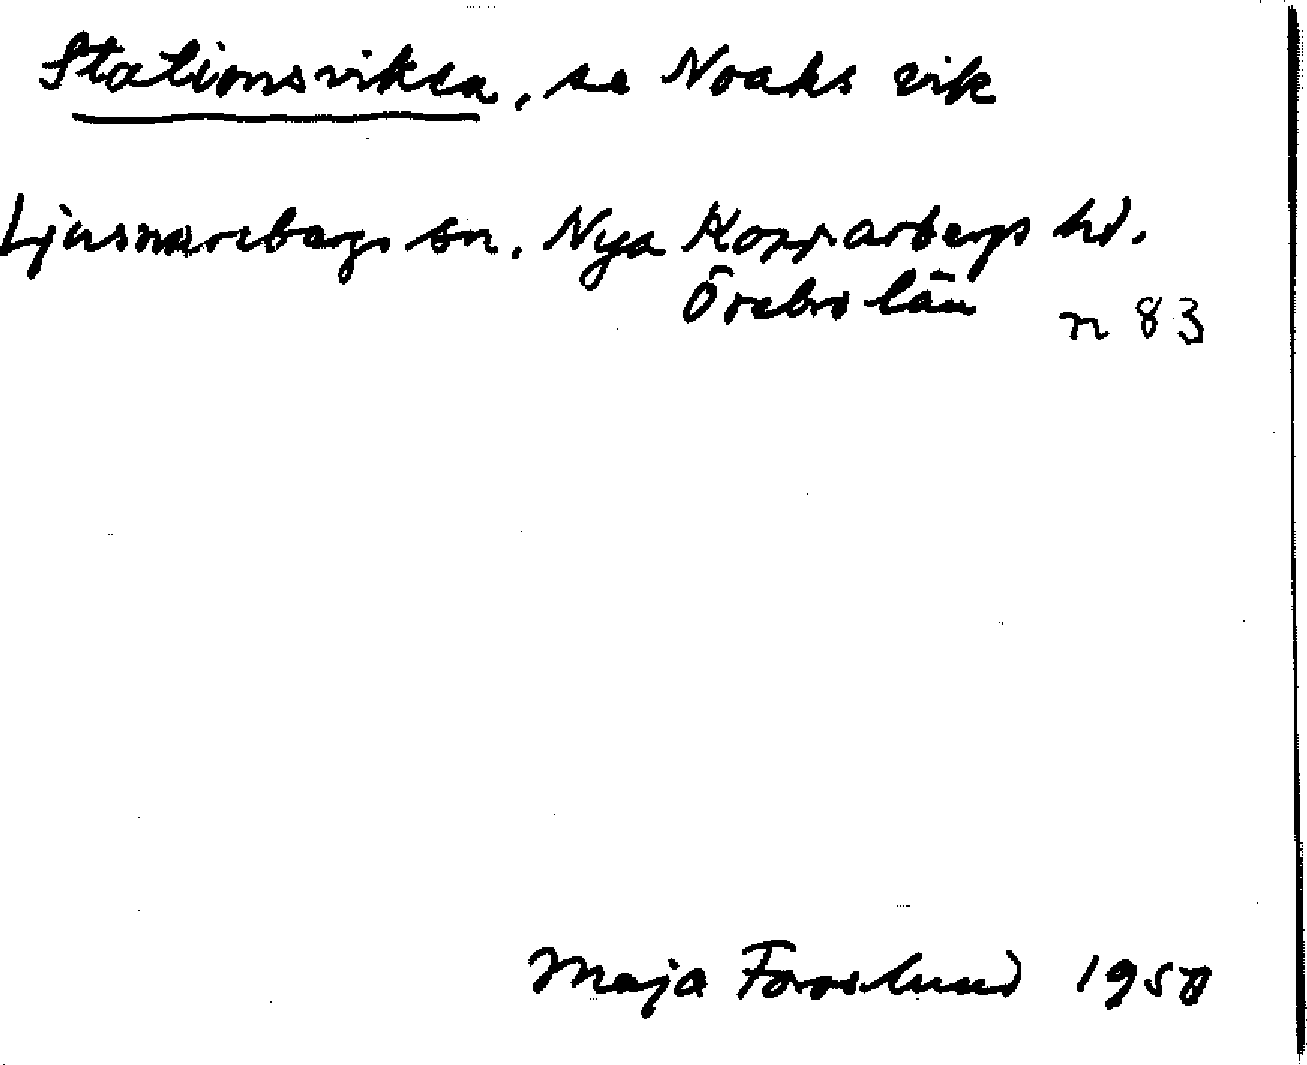 Stationsviken, se Noaks vik
Ljusnarsbergs sn. Nya Kopparbergs hd.
Örebro län n 83
Maja Forslund 1950